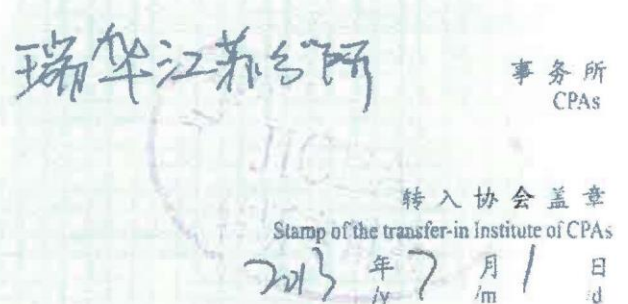 瑞华江苏分所 事务所
CPAs
转入协会盖章
Stamp of the transfer-in Institute of CPAs
2013年7月1日
/y /m /d